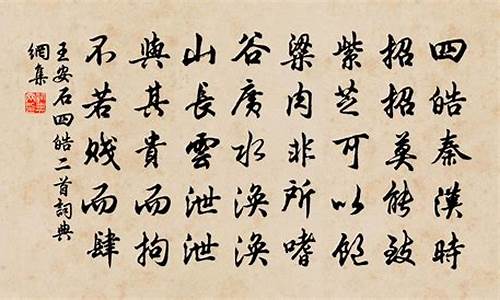 四皓秦漢時
招招莫能致
紫芝可以飽
粱肉非所嗜
谷廣水渙渙
山長雲泄泄
與其貴而拘
不若賤而肆
王安石四皓二首詞典
網集